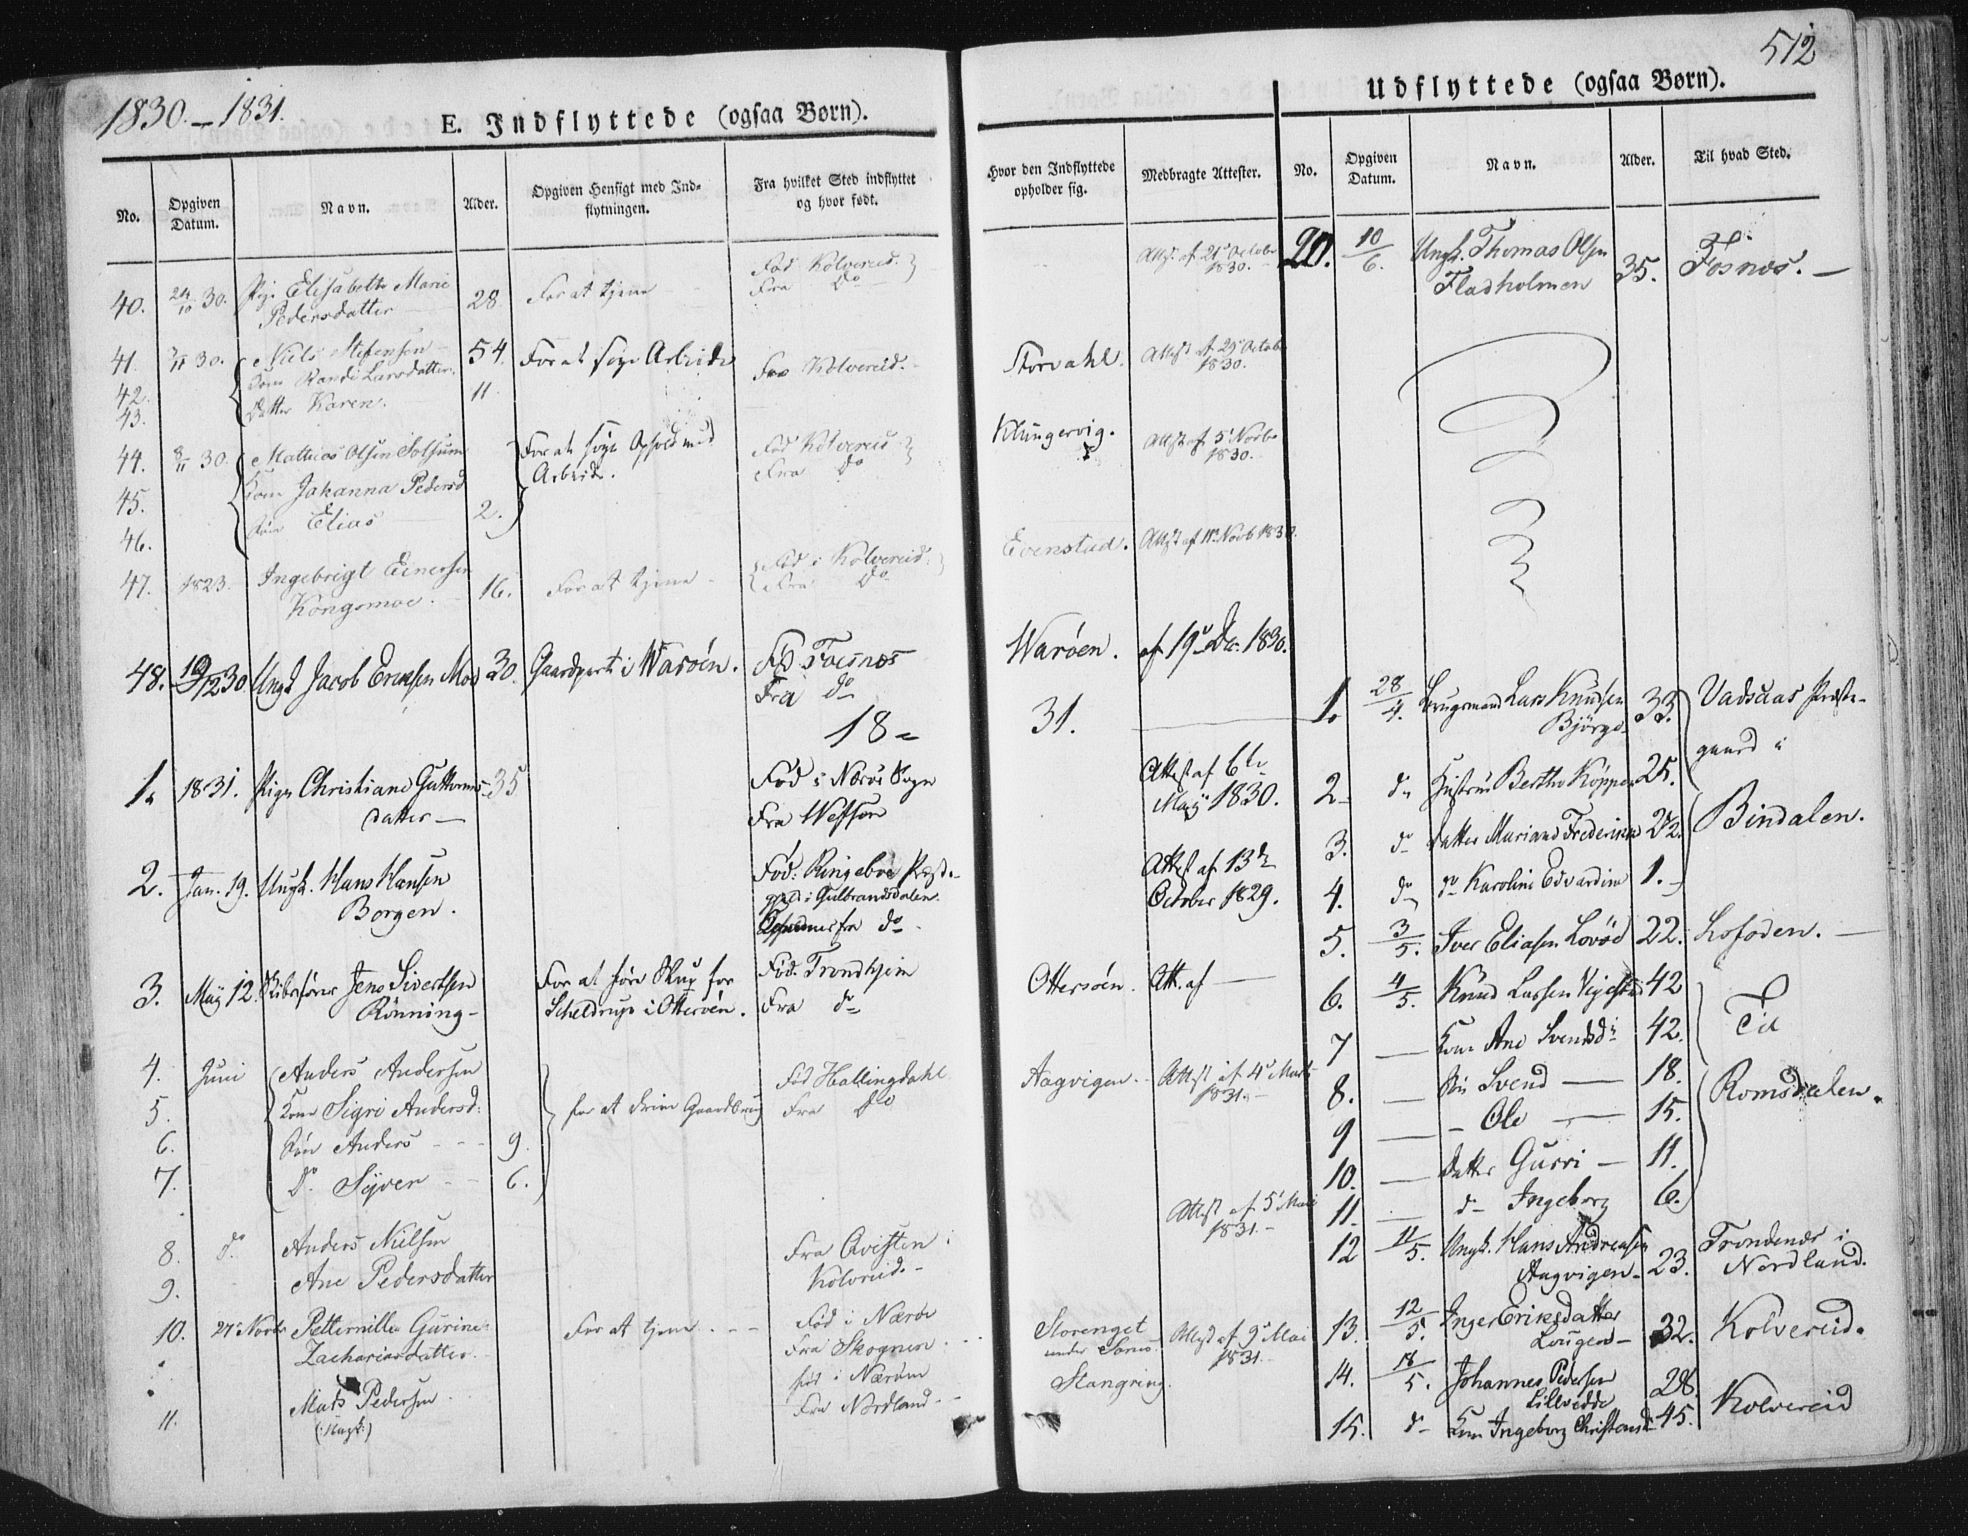 1830.-1831.
E. Indflyttede (ogsaa Børn).
No.
Opgiven Datum.
Navn.
Alder.
Opgiven Hensigt med Indflytningen.
Fra hvilket Sted indflyttet og hvor født.
Hvor den Indflyttede opholder sig.
Medbragte Attester.
40. 24/10 30. Pige Elisabeth Marie 28. For at tjene Fød Kolvereid. Attst. af 21d October
Pedersdatter Fra Do 1830.
41. 30. Niels Stefensen 54. For at søge Arbeide Fra Kolvereid. Storvahl. Attest af 29d Octob
42. Kone Randi Larsdatter. 1830.
43. Datter Karen. 11
44. 8/11 30. Mathias Olsen Solsum For at søge Ophold med Fød Kolvereid Klungervig. Attst. af 5d Novbr
45. Kone Johanna Pedersd Arbeide. Fra Do 1830.
46. Søn Elias 2.
47. 1823. Ingebrigt Einersen 16. For at tjene Fød i Kolvereid. Evenstad. Attst af 11te Novb 1830.
Kongsmoe. Fra Do
48. 19/12 30 Ungk Jacob Eriksen Moe 30. Gaardpart i Warøen. Fød Foesnæs Warøen. af 19d Dec. 1830.
Fra do
18 31.
1. 1831. Pige Christiane Guttorms- 35 Fød i Nærøe Sogn Attest af 6te
datter Fra Wefsen May 1830.
2. Jan. 19. Ungk. Hans Hansen Fød: Ringeboe Præste- Attest af 13de
Borgen. gjeld i Gulbrandsdalen. October 1829.
fra do
3. May 12. Skibsfører Jens Sivertsen For at føre Skup for Fød: Trondhjem Ottersøen. Att. af
Rönning Scheldrup i Ottersøen. Fra do
4. Juni Anders Andersen Fød Hallingdahl Aagvigen. Attest af 4d Marts
5. Kone Sigri Andersd: for at drive Gaardbrug Fra Do 1831.
6. Søn Anders 9.
7. Do Syver 6.
8. do Anders Nielsen Fra Qvisten i Attest af 5d Mai
9. Ane Pedersdatter Kolvreid. 1831.
10. 27d Novbr Petternille Gurine For at tjene Fød i Nærøe Storenget Attest af 9d Mai
Zachariasdatter Fra Skognen under 1831.
11. Mats Pedersen fød i Nærøen Stangring.
(:Ungk:) Fra Nordland.
512
Udflyttede (ogsaa Børn).
No.
Opgiven Datum.
Navn.
Alder.
Til hvad Sted.
20. 10/6. Ungk. Thomas Olsen 35. Fosnæs.
Fladholmen
1. 28/4. Brugsmand Lars Knudsen 33. Vadsaas Præste-
Bjørge gaard i
2 do Hustrue Berthe Köppen 25. Bindalen.
3. do Datter Mariane Frederikke 2 1/2.
4. do do Karoline Edvardine 1.
5. 3/5. Iver Eliasen Lovöe 22. Lofoden.
6. 4/5. Knud Larsen 42 Til
7 Kone Ane Svendsd: 42. Romsdalen.
8. Svend 18.
9 Ole 15.
10. Datter Gurri 11.
11. do Ingeborg 6.
12 11/5. Ungk. Hans Andreasen 23. Trondenæs i
Aagvigen Nordland.
13. 12/5. Inger Eriksdatter 32. Kolvereid.
Lougen
14. 18/5. Johannes Pedersen 28. Kolvereid
Lillvedde
15. do Kone Ingeborg Christensd 45.